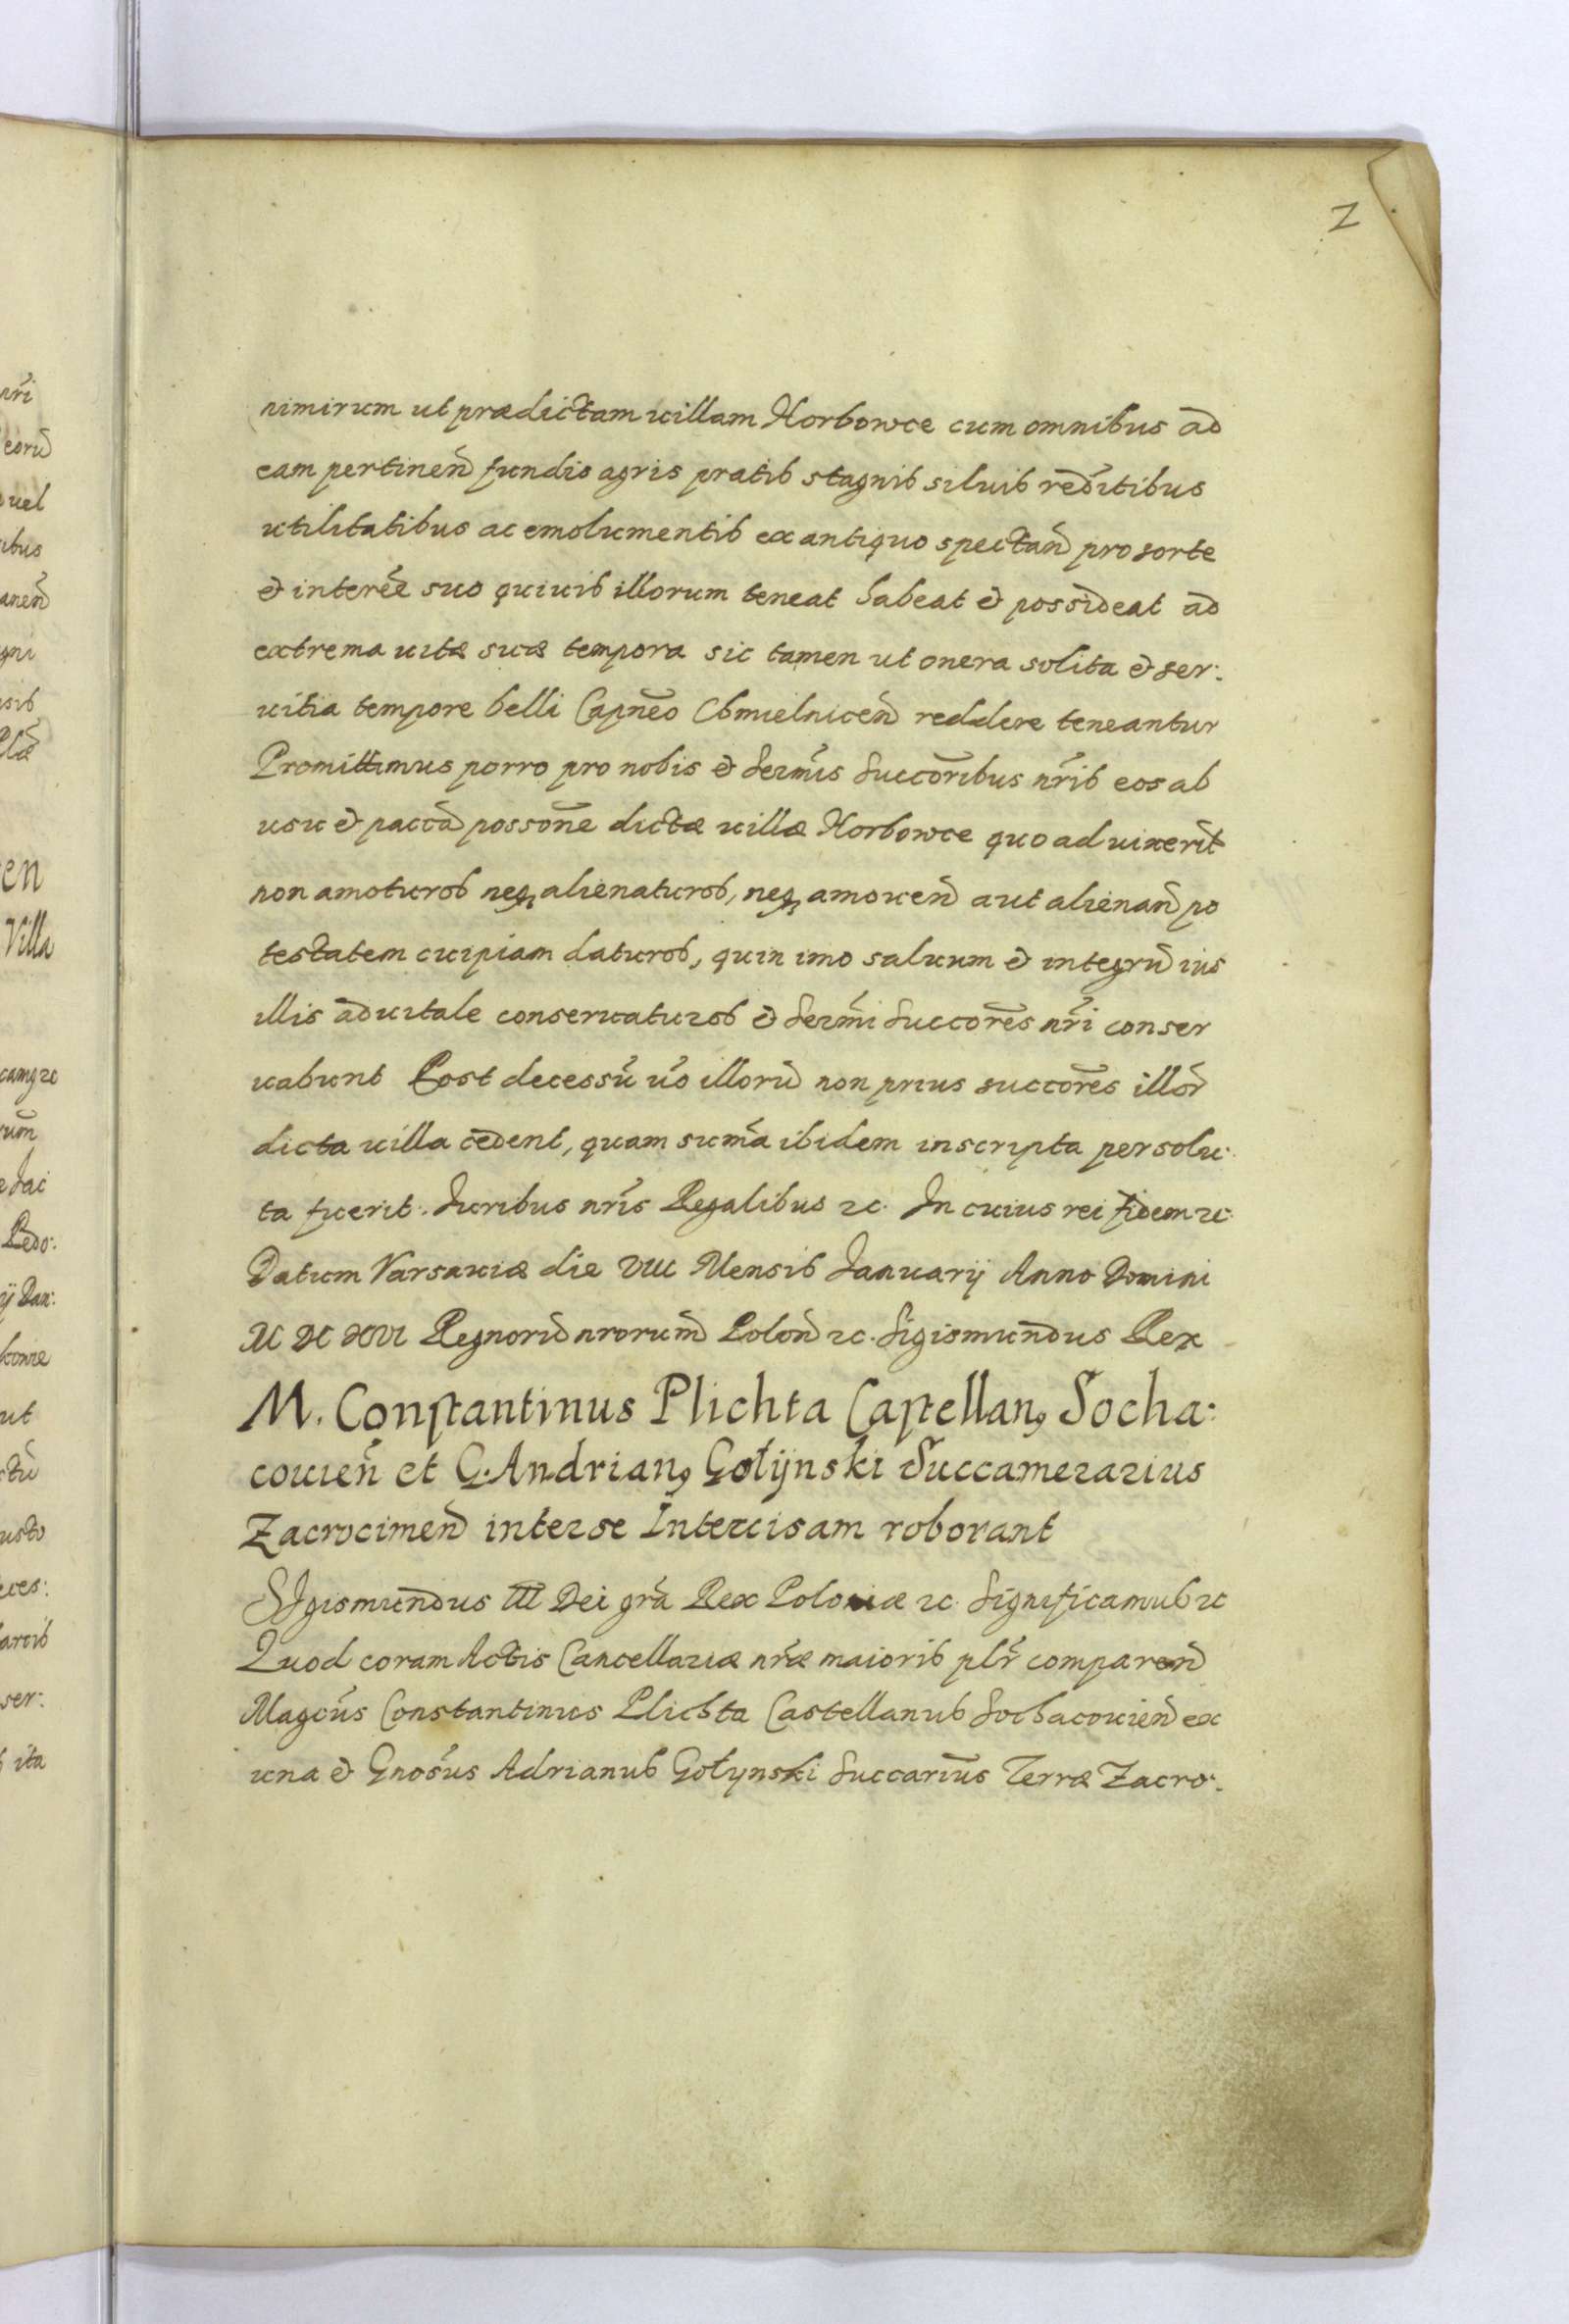 2
nimirum ut prædictam uillam Horbowce cum omnibus ad
eam pertineñ fundis agris pratis stagnis siluis reditibus
utilitatibus ac emolumentis ex antiquo spectañ pro sorte
& interée suo quiuis illorum teneat habeat & possideat ad
extrema uitæ suæ tempora sic tamen ut onera solita & ser:
uitia tempore belli Capneo Chmielniceñ reddere teneantur
Promittimus porro pro nobis & Sermis Succoribus nris eos ab
usu & paccã possone dictæ uillæ Horbowce quo ad uixerit
non amoturos neq alienaturos, neq amoueñ aut alienañ po
testatem cuipiam daturos, quin imo saluum & integrũ ius
illis aduitale conseruaturos & Sermi Succores nri conser
uabunt Post decessũ uo illorũ non prius succores illor
dicta uilla cedent, quam suma ibidem inscripta persolu:
ta fuerit. Iuribus nris Regalibus zc. In cuius rei fidem zc.
Datum Varsauiæ die VIII Mensis Ianuarij Anno Domini
M DC XVI Regnorũ nrorum Poloñ zc. Sigismundus Rex
M. Constantinus Plichta Castellan9 Socha:
couieñ et G. Andrian9 Gołijnski Succamerarius
Zacrocimeñ inter se Intercisam roborant
SIgismundus III Dei grã Rex Poloniæ zc. Significamus zc
Quod coram Actis Cancellariæ nræ maioris plr compareñ
Magcus Constantinus Plichta Castellanus Sochacouieñ ex
una & Gnosus Adrianus Gołynski Succarius Terræ Zacro:
nri
eorũ
uel
ibus
aneñ
gni
sis
en
Villa
rum
Iac
Redo:
ij Dan:
ut
usto
ser:
ita